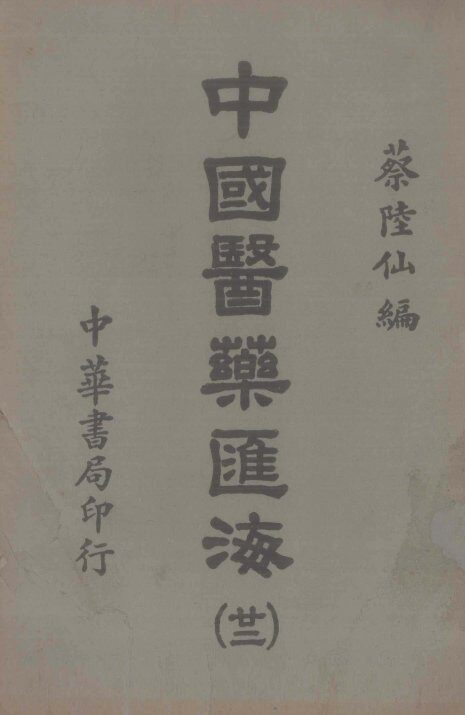 蔡陸仙編
中國醫藥匯海(廿三)
中華書局印行